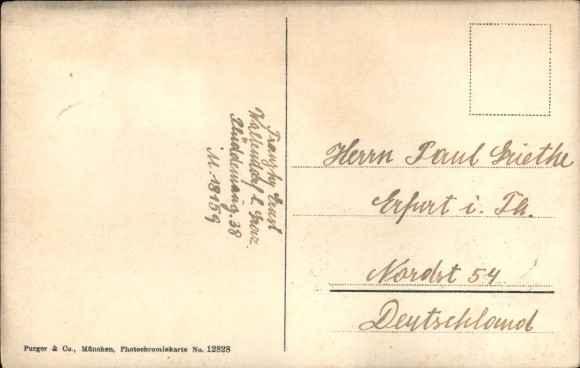 Franzky Ernst
Waltendorf b. Graz.
Plüddemang. 38
M. 18159
Herrn Paul Griethe
Erfurt i. Th.
Nordst 54
Deutschland
Purger & Co., München, Photochromiekarte No. 12828